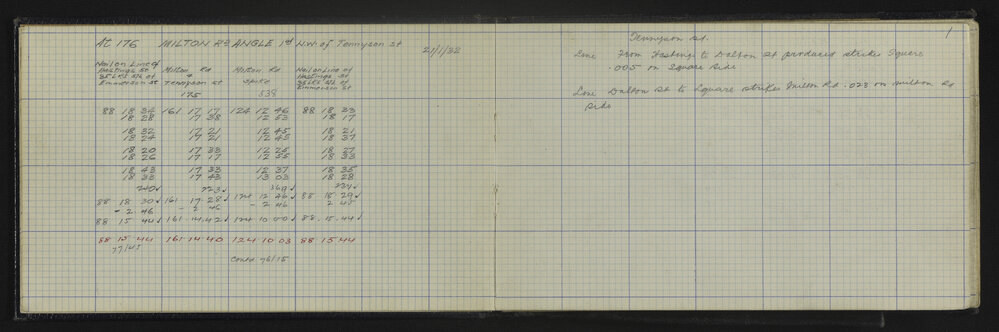 At 176 MILTON Rd ANGLE 1st N.W. of Tennyson St 21/1/32
Nail on Line of Milton Rd Milton Rd Nail on Line of
Hastings St & Spike Hastings St
35 LKS S/L of Tennyson St 35 LKS S/L of
Emmerson St 175 538 Emmerson St
88 18 34 161 17 17 124 12 46 88 18 33
18 28 17 38 12 53 18 17
18 32 17 21 12 45 18 21
18 24 17 21 12 45 18 37
18 20 17 33 12 26 18 27
18 26 17 17 12 55 18 33
18 43 17 33 12 37 18 35
18 33 17 43 13 03 18 28
240 223 369
88 18 30 161 17 28 124 12 46 88 18 29
- 2 46 - 2 46 - 2 46 2 45
88 15 44 161.14.42 124 10 00 88.15.44
88 15 44 161.14.40 124 10 03 88 15 44
77/45
Contd 76/15
1
Tennyson St.
Line From Hastings to Dalton St produced strikes Square
.005 on Square side
Line Dalton St to Square strikes Milton Rd .023 on Milton Rd
side